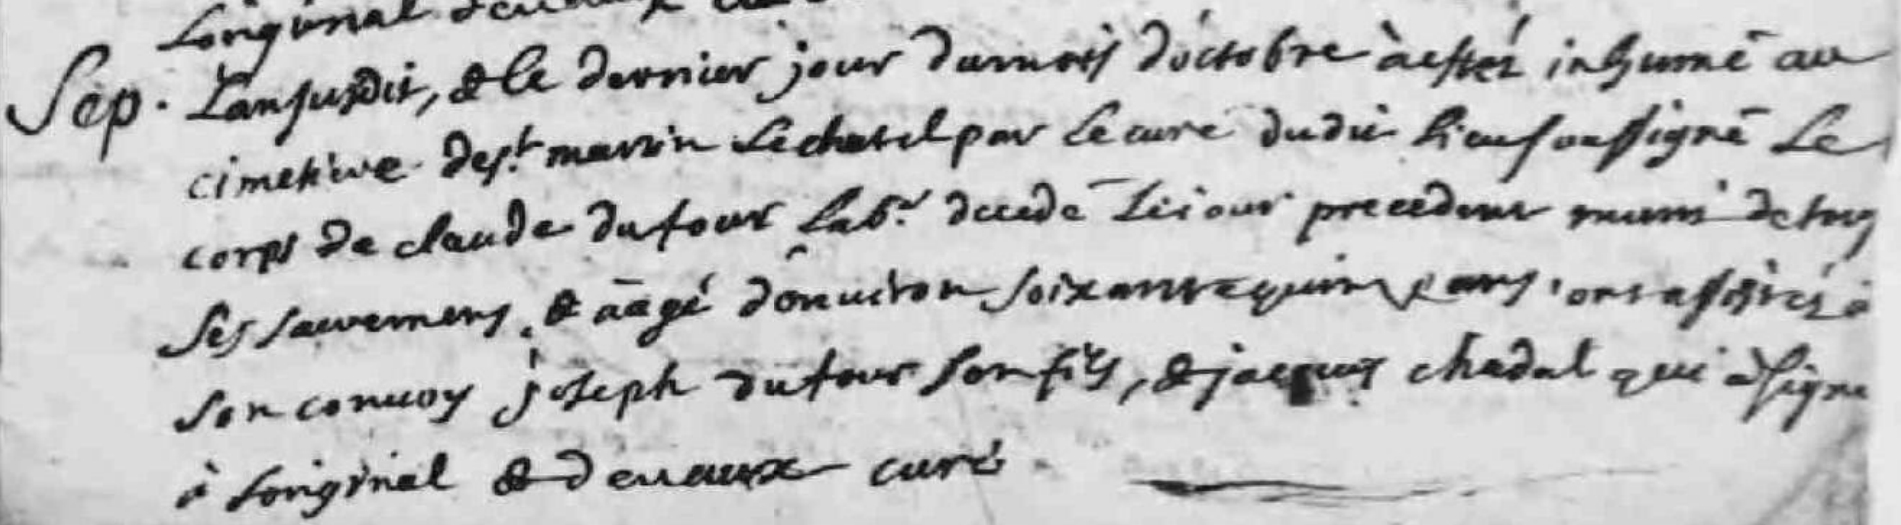 Loriginal devaux
Sep. Lansusdit, & le dernier jour dumois d'octobre à esté inhumé au
cimetiere de st martin Lechatel par Le curé dudit Lieu soussigné Le
corps de claude dufour Labr decedé Le iour precedent muni de tous
ses sacremens, & aagé d'environ soixante quinze ans, ont assistés à
son convoy joseph dufour son fils, & jacques chadal qui à signé
à Loriginal & devaux curé